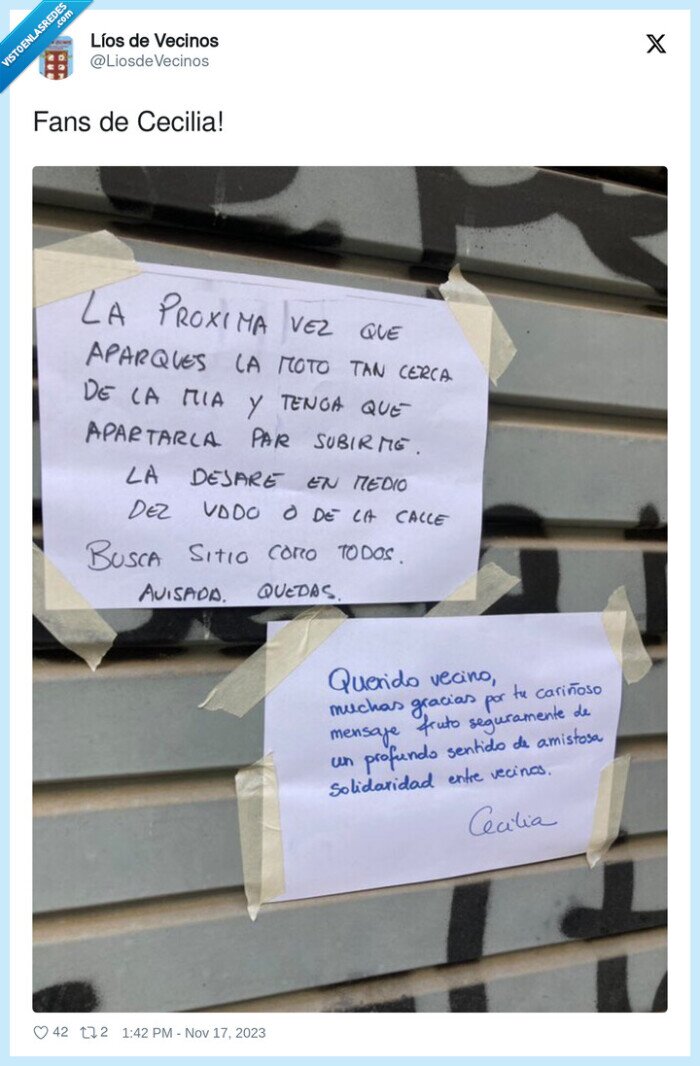 VISTOENLASREDES
.com
Líos de Vecinos
@LiosdeVecinos
X
Fans de Cecilia!
LA PROXIMA VEZ QUE
APARQUES LA MOTO TAN CERCA
DE LA MIA Y TENGA QUE
APARTARLA PAR SUBIRME.
LA DEJARE EN MEDIO
DEL VADO O DE LA CALLE
BUSCA SITIO COMO TODOS.
AVISADA. QUEDAS.
Querido vecino,
muchas gracias por tu cariñoso
mensaje fruto seguramente de
un profundo sentido de amistosa
solidaridad entre vecinos.
Cecilia
42 2 1:42 PM - Nov 17, 2023